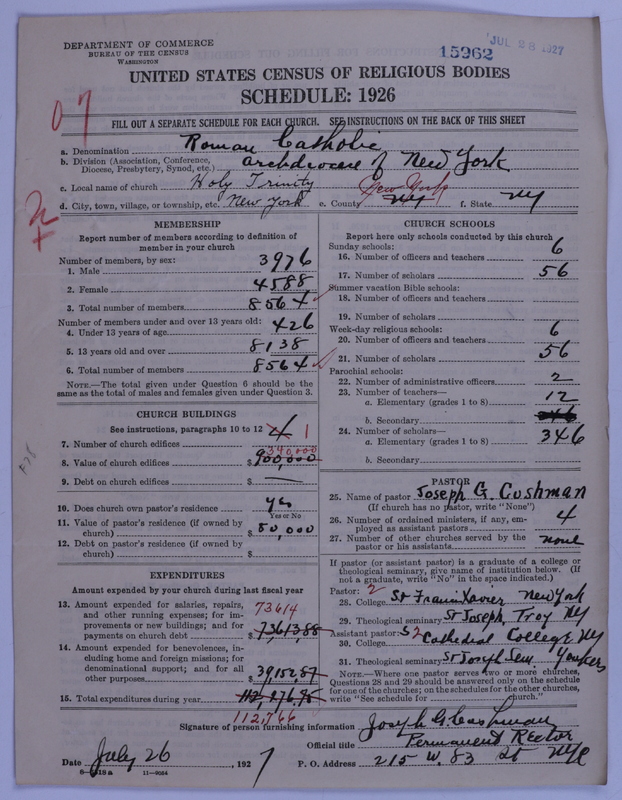 DEPARTMENT OF COMMERCE
BUREAU OF THE CENSUS
WASHINGTON
15962
JUL 28 1927
UNITED STATES CENSUS OF RELIGIOUS BODIES
SCHEDULE: 1926
FILL OUT A SEPARATE SCHEDULE FOR EACH CHURCH. SEE INSTRUCTIONS ON THE BACK OF THIS SHEET
a. Denomination Roman Catholic
b. Division (Association, Conference, Diocese, Presbytery, Synod, etc.) Archdiocese of New York
c. Local name of church Holy Trinity
New York
d. City, town, village, or township, etc. New York e. County NY f. State NY
MEMBERSHIP
Report number of members according to definition of
member in your church
Number of members, by sex:
1. Male 3976
2. Female 4588
3. Total number of members 8564
Number of members under and over 13 years old:
4. Under 13 years of age 426
5. 13 years old and over 8138
6. Total number of members 8564
NOTE.—The total given under Question 6 should be the
same as the total of males and females given under Question 3.
CHURCH BUILDINGS
See instructions, paragraphs 10 to 12
7. Number of church edifices 4 1
340,000
8. Value of church edifices $ 900,000
9. Debt on church edifices $ —
10. Does church own pastor's residence? yes
Yes or No
11. Value of pastor's residence (if owned by
church) $ 50,000
12. Debt on pastor's residence (if owned by
church) $
EXPENDITURES
Amount expended by your church during last fiscal year
13. Amount expended for salaries, repairs,
and other running expenses; for im-
provements or new buildings; and for
payments on church debt $ 73613,88
73614
14. Amount expended for benevolences, in-
cluding home and foreign missions; for
denominational support; and for all
other purposes $ 39152,87
15. Total expenditures during year 112,276.75
112,766
CHURCH SCHOOLS
Report here only schools conducted by this church
Sunday schools:
16. Number of officers and teachers 6
17. Number of scholars 56
Summer vacation Bible schools:
18. Number of officers and teachers
19. Number of scholars
Week-day religious schools:
20. Number of officers and teachers 6
21. Number of scholars 56
Parochial schools:
22. Number of administrative officers 2
23. Number of teachers—
a. Elementary (grades 1 to 8) 12
b. Secondary 346
24. Number of scholars—
a. Elementary (grades 1 to 8) 346
b. Secondary
PASTOR
25. Name of pastor Joseph G. Cushman
(If church has no pastor, write "None")
26. Number of ordained ministers, if any, em-
ployed as assistant pastors 4
27. Number of other churches served by the
pastor or his assistants none
If pastor (or assistant pastor) is a graduate of a college or
theological seminary, give name of institution below. (If
not a graduate, write "No" in the space indicated.)
Pastor: 2
28. College St Francis Xavier New York
29. Theological seminary St Joseph, Troy NY
Assistant pastor: 2
30. College Cathedral College NY
31. Theological seminary St Joseph Sem Yonkers
NOTE.—Where one pastor serves two or more churches,
Questions 28 and 29 should be answered only on the schedule
for one of the churches; on the schedules for the other churches,
write "See schedule for church."
Signature of person furnishing information Joseph G Cushman
Official title Permanent Rector
Date July 26, 1927 P. O. Address 215 W. 83 St NYC
11—9054